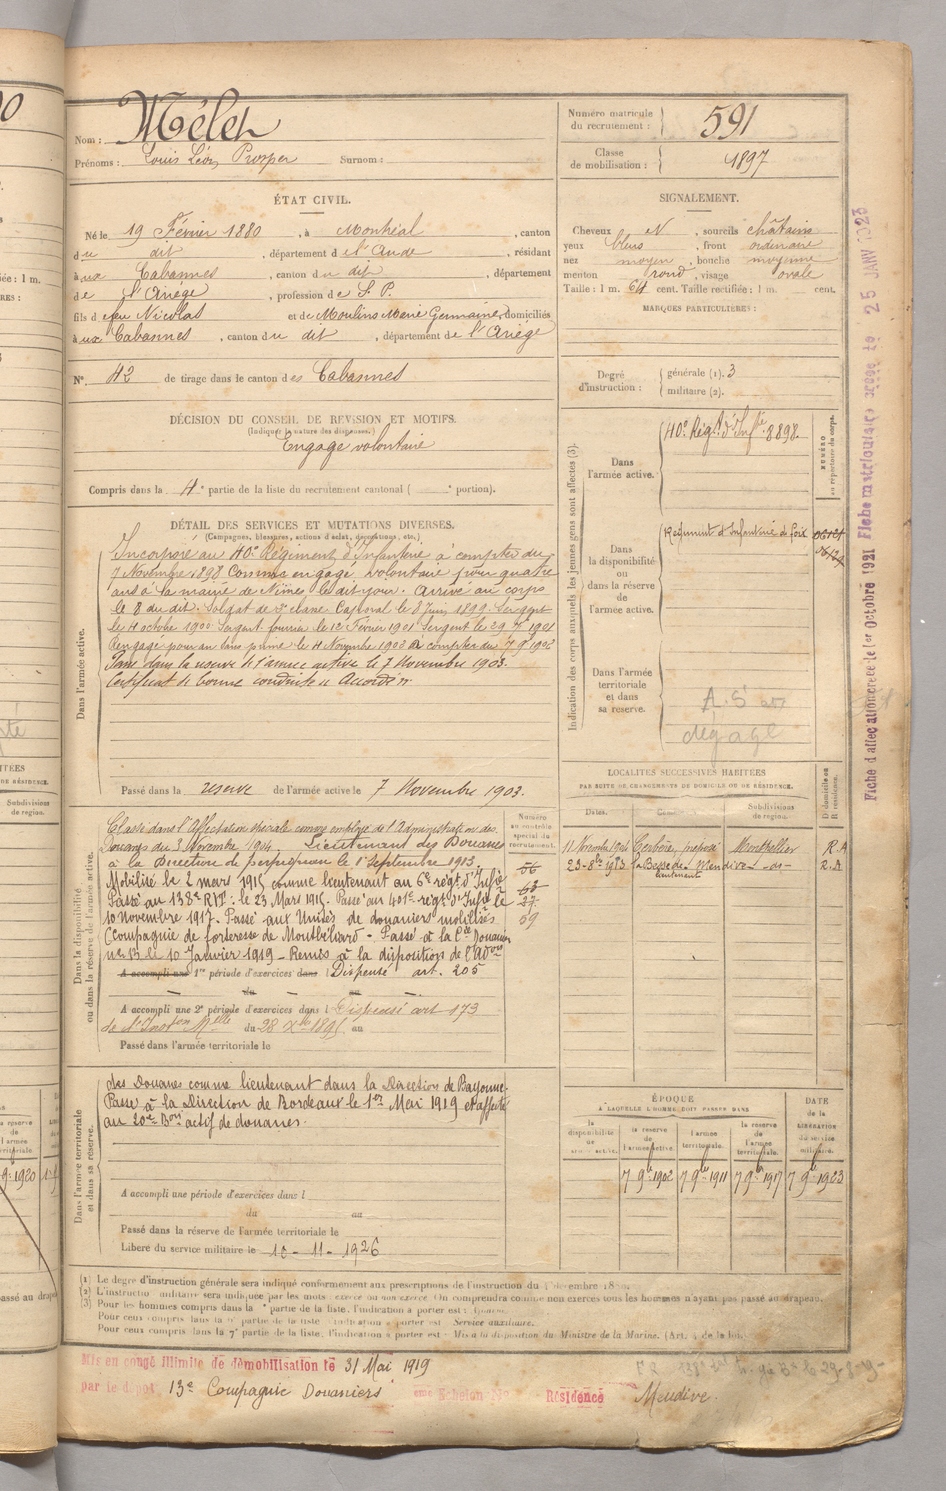 Nom : Mélet
Prénoms : Louis Léon Prosper Surnom :
Numéro matricule du recrutement : 591
Classe de mobilisation : 1897
ÉTAT CIVIL.
Né le 19 Février 1880, à Montréal, canton
du dit, département de l'Aude, résidant
aux Cabannes, canton du dit, département
de l'Ariège, profession de S. P.
fils de feu Nicolas et de Moulins Marie Germaine, domiciliés
aux Cabannes, canton du dit, département de l'Ariège
N° 42 de tirage dans le canton des Cabannes
SIGNALEMENT.
Cheveux N, sourcils châtains
yeux bleus, front ordinaire
nez moyen, bouche moyenne
menton rond, visage ovale
Taille : 1 m. 64 cent. Taille rectifiée : 1 m. cent.
MARQUES PARTICULIÈRES :
Degré d'instruction : générale (1). 3
militaire (2).
DÉCISION DU CONSEIL DE REVISION ET MOTIFS.
(Indiquer la nature des dispenses.)
Engagé volontaire
Compris dans la 4e partie de la liste du recrutement cantonal ( e portion).
DÉTAIL DES SERVICES ET MUTATIONS DIVERSES.
(Campagnes, blessures, actions d'éclat, décorations, etc.)
Dans l'armée active.
Incorporé au 40e Régiment d'Infanterie à compter du
7 Novembre 1898 Comme engagé volontaire pour quatre
ans à la mairie de Nîmes, le dit jour. Arrivé au corps
le 8 du dit. Soldat de 2e classe. Caporal le 8 Juin 1899. Sergent
le 4 octobre 1900. Sergent fourrier le 12 Février 1901 Sergent le 29 1901
Rengagé pour un an sans prime le 4 Novembre 1902 à compter du 7 9bre 1902
Passé dans la réserve de l'armée active le 7 Novembre 1903.
Certificat de bonne conduite "Accordé".
Passé dans la réserve de l'armée active le 7 Novembre 1903.
Indication des corps auxquels les jeunes gens sont affectés (3)
Dans l'armée active.
40e Régt d'Infie 8898.
NUMÉRO au répertoire du corps.
Dans la disponibilité ou dans la réserve de l'armée active.
Régiment d'Infanterie de Foix
Dans l'armée territoriale et dans sa réserve.
A.S
dégagé
LOCALITÉS SUCCESSIVES HABITÉES
PAR SUITE DE CHANGEMENTS DE DOMICILE OU DE RÉSIDENCE.
Dates. Communes. Subdivisions de région. D domicile ou R résidence.
11 Novembre 1904 Cerbère, préposé Montpellier R.A
23-8bre 1913 Mendive R.A
lieutenant
Dans la disponibilité ou dans la réserve de l'armée active.
Classé dans l'Affectation spéciale comme employé de l'Administration des
Douanes du 3 Novembre 1904. Lieutenant des Douanes
à la Direction de Perpignan le 1er Septembre 1913.
Mobilisé le 2 mars 1915 comme lieutenant au 6e régt d'Infie
Passé au 138e RIT. le 23 Mars 1915. Passé au 401e régt d'Infie le
10 novembre 1917. Passé aux Unités de douaniers mobilisés
(Compagnie de forteresse de Montbéliard - Passé à la Cie Douaniers
n° 13 le 10 Janvier 1919 - Remis à la disposition de l'Adon
A accompli une 1re période d'exercices dans Dispensé art. 205
du au
A accompli une 2e période d'exercices dans l Dispensé art 173
de l'Inston Mlle du 28 Xbre 1895 au
Passé dans l'armée territoriale le
Numéro au contrôle spécial du recrutement.
56
63
27
59
Dans l'armée territoriale et dans sa réserve.
des Douanes comme lieutenant dans la Direction de Bayonne.
Passé à la Direction de Bordeaux le 1er Mai 1919 et affecté
au 20e Bon actif de douanes.
A accompli une période d'exercices dans l
du au
Passé dans la réserve de l'armée territoriale le
Libéré du service militaire le 10-11-1926
ÉPOQUE
À LAQUELLE L'HOMME DOIT PASSER DANS
la disponibilité de l'armée active. la réserve de l'armée active. l'armée territoriale. la réserve de l'armée territoriale.
DATE de la LIBÉRATION du service militaire.
7 9bre 1902 7 9bre 1911 7 9bre 1917 7 9bre 1923
(1) Le degré d'instruction générale sera indiqué conformément aux prescriptions de l'instruction du décembre
(2) L'instruction militaire sera indiquée par les mots : exercé ou non exercé. On comprendra comme non exercés tous les hommes n'ayant pas passé au drapeau.
(3) Pour les hommes compris dans la e partie de la liste, l'indication à porter est :
Pour ceux compris dans la 6e partie de la liste l'indication à porter est Service auxiliaire.
Pour ceux compris dans la 7e partie de la liste, l'indication à porter est Mis à la disposition du Ministre de la Marine. (Art. 4 de la loi)
Mis en congé illimité de démobilisation le 31 Mai 1919
par le dépôt 13e Compagnie Douaniers eme Echelon No Résidence Mendive.
Fiche d'affectation créée le 1er Octobre 1921 Fiche matriculaire créée le 25 JANV 1923